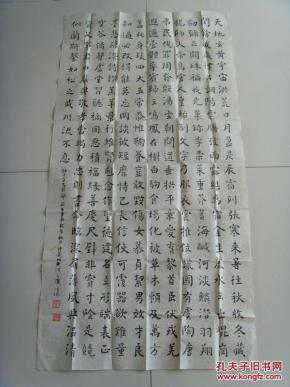 天地玄黄宇宙洪荒日月盈昃辰宿列張寒来暑往秋收冬藏
閏餘成歲律吕調陽雲騰致雨露結為霜金生麗水玉出崑岡
劍號巨闕珠稱夜光菓珍李柰菜重芥薑海鹹河淡鱗潛羽翔
龍師火帝鳥官人皇始制文字乃服衣裳推位讓國有虞陶唐
弔民伐罪周發殷湯坐朝問道垂拱平章愛育黎首臣伏戎羌
遐邇壹體率賓歸王鳴鳳在樹白駒食場化被草木賴及萬方
蓋此身髮四大五常恭惟鞠養豈敢毀傷女慕貞絜男效才良
知過必改得能莫忘罔談彼短靡恃己長信使可覆器欲難量
墨悲絲染詩讚羔羊景行維賢克念作聖德建名立形端表正
空谷傳聲虛堂習聽禍因惡積福緣善慶尺璧非寶寸陰是競
資父事君曰嚴與敬孝當竭力忠則盡命臨深履薄夙興温凊
似蘭斯馨如松之盛川流不息